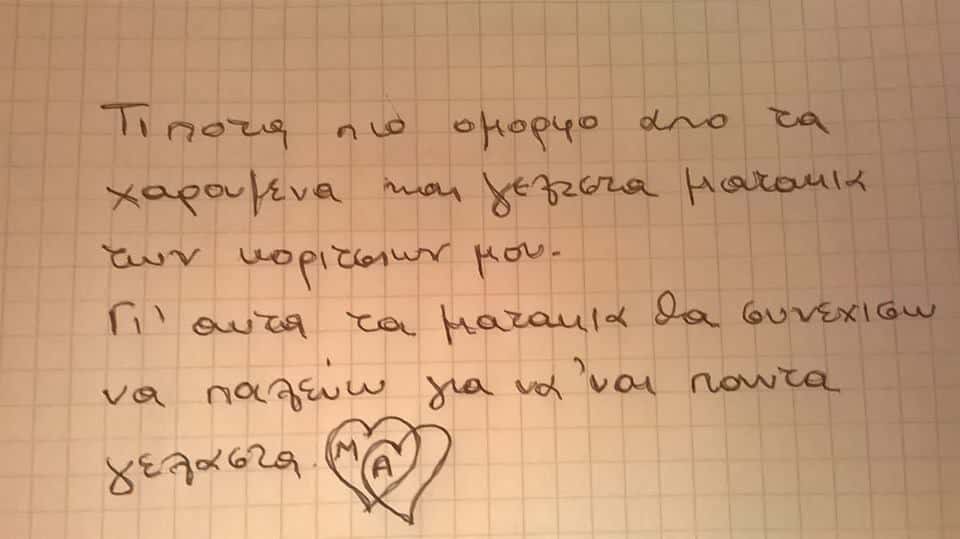 Τιποτα πιο ομορφο απο τα
χαρουμενα και γελαστα ματακια
των κοριτσιων μου.
Γι' αυτα τα ματακια θα συνεχισω
να παλεύω για να 'ναι παντα
γελαστα.
Μ Α